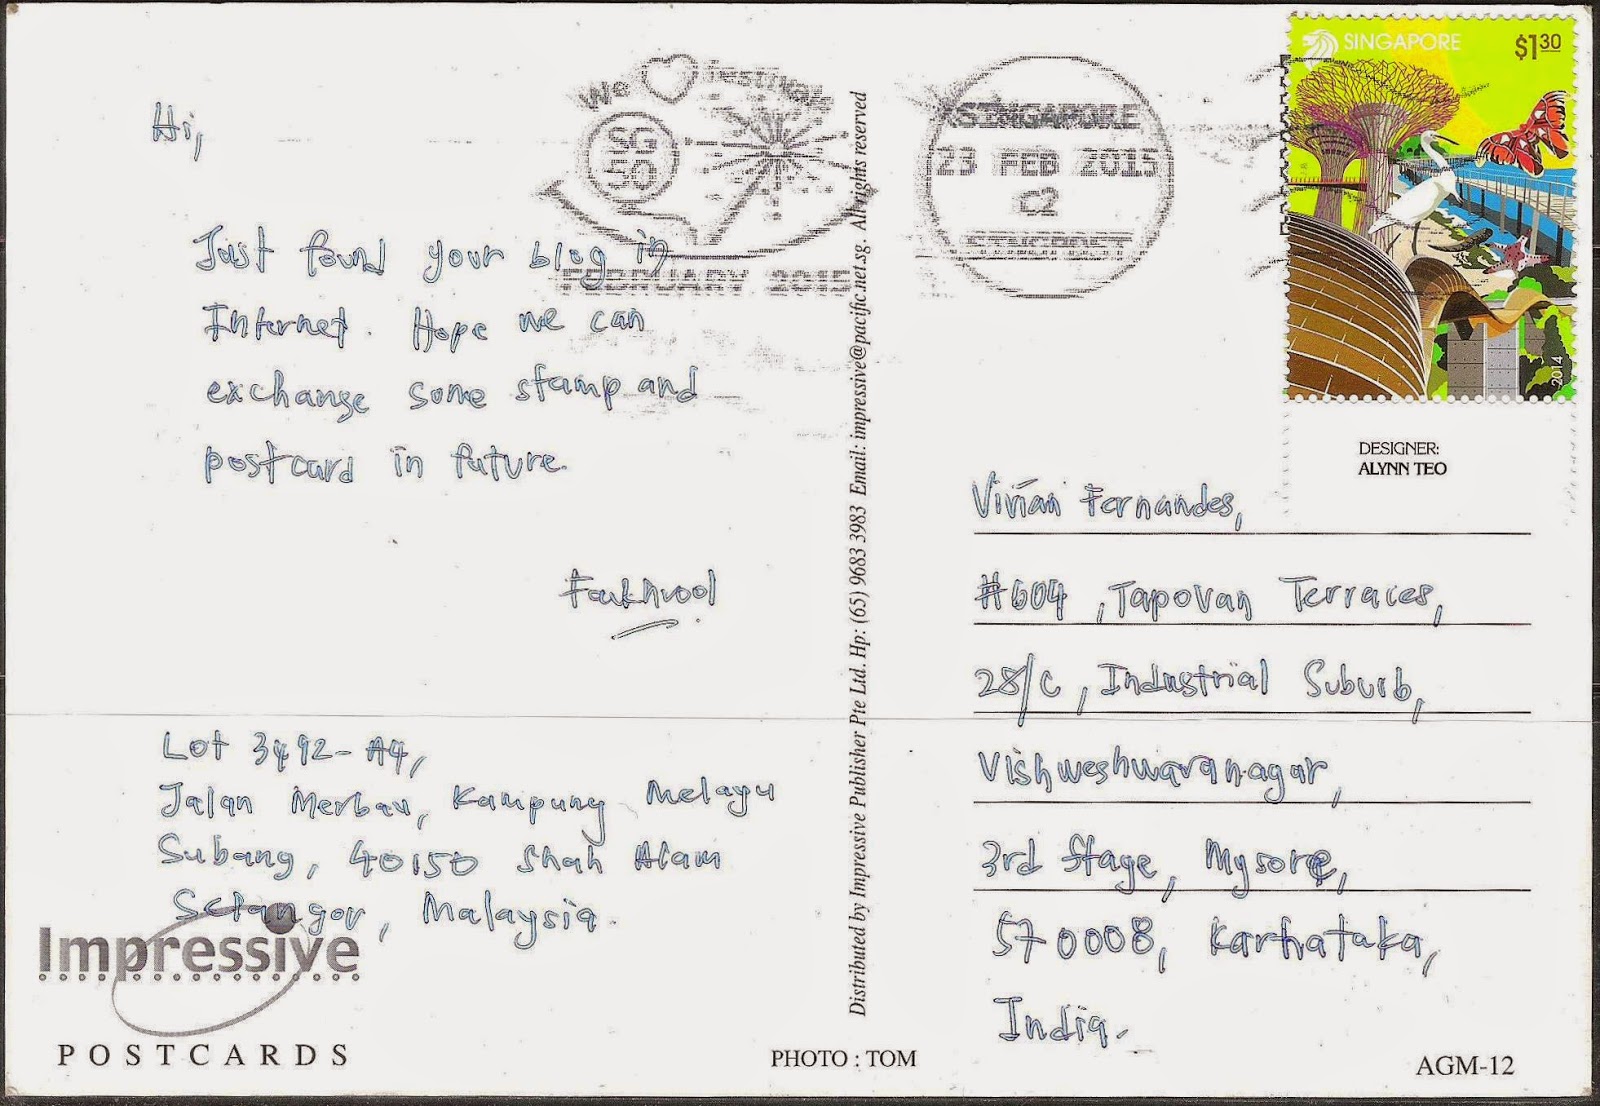 Hi,
Just found your blog in
Internet. Hope we can
exchange some stamp and
postcard in future.
Fakhrool
Lot 3492-A4,
Jalan Merbau, Kampung Melayu
Subang, 40150 Shah Alam
Selangor, Malaysia.
Impressive
POSTCARDS
We
FEBRUARY 2015
Distributed by Impressive Publisher Pte Ltd. Hp: (65) 9683 3983 Email: impressive@pacific.net.sg. All rights reserved
PHOTO : TOM
SINGAPORE
23 FEB 2015
C2
SINGPOST
SINGAPORE
$130
2014
DESIGNER:
ALYNN TEO
Vivian Fernandes,
#604, Tapovan Terraces,
28/C, Industrial Suburb,
Vishweshwaranagar,
3rd Stage, Mysore,
570008, Karnataka,
India.
AGM-12